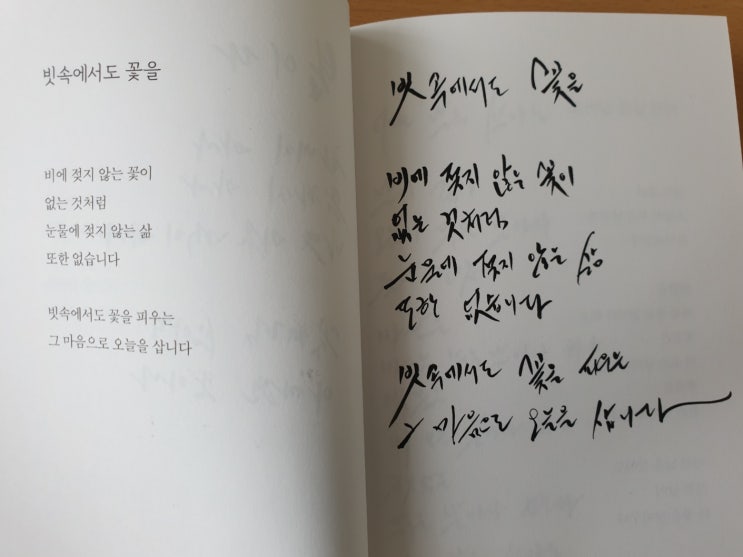 빗속에서도 꽃을
비에 젖지 않는 꽃이
없는 것처럼
눈물에 젖지 않는 삶
또한 없습니다
빗속에서도 꽃을 피우는
그 마음으로 오늘을 삽니다
빗속에서도 꽃을
비에 젖지 않은 꽃이
없는 것처럼
눈물에 젖지 않은 삶
또한 없습니다
빗속에서도 꽃을 피우는
그 마음으로 오늘을 삽니다